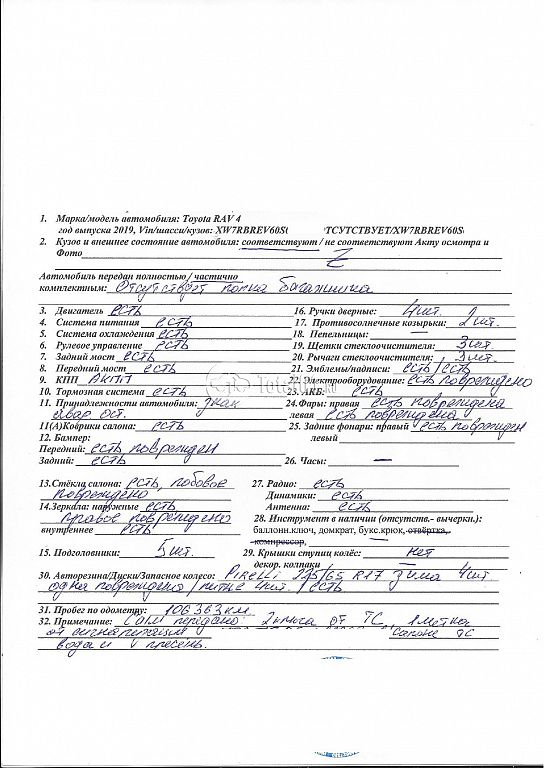 1. Марка/модель автомобиля: Toyota RAV 4
год выпуска 2019, Vin/шасси/кузов: XW7RBREV60S( ТСУТСТВУЕТ/XW7RBREV60S
2. Кузов и внешнее состояние автомобиля: соответствуют / не соответствуют Акту осмотра и
Фото Z
Автомобиль передан полностью / частично
комплектным: Отсутствует полка багажника
3. Двигатель есть 16. Ручки дверные: 4 шт.
4. Система питания есть 17. Противосолнечные козырьки: 2 шт.
5. Система охлаждения есть 18. Пепельницы: —
6. Рулевое управление есть 19. Щетки стеклоочистителя: 3 шт
7. Задний мост есть 20. Рычаги стеклоочистителя: 3 шт.
8. Передний мост есть 21. Эмблемы/надписи: есть/есть
9. КПП АКПП 22. Электрооборудование: есть повреждено
10. Тормозная система есть 23. АКБ: есть
11. Принадлежности автомобиля: знак 24. Фары: правая есть повреждена
авар. ост. левая есть повреждена
11(А) Коврики салона: есть 25. Задние фонари: правый есть поврежден
12. Бампер: левый
Передний: есть поврежден
Задний: есть 26. Часы: —
13. Стёкла салона: есть, лобовое 27. Радио: есть
повреждено Динамики: есть
14. Зеркала: наружные есть Антенна: есть
правое повреждено 28. Инструмент в наличии (отсутств.- вычеркн.):
внутреннее есть баллонн.ключ, домкрат, букс.крюк, отвёртка,
компрессор,
15. Подголовники: 5 шт. 29. Крышки ступиц колёс: нет
декор. колпаки —
30. Авторезина/Диски/Запасное колесо: Pirelli 225/65 R17 зима 4 шт
одна повреждено / литые 4 шт. / есть
31. Пробег по одометру: 106363 км.
32. Примечание: передано: 2 ключа от ТС, 1 метка
от сигнализации В салоне ТС
вода и плесень.